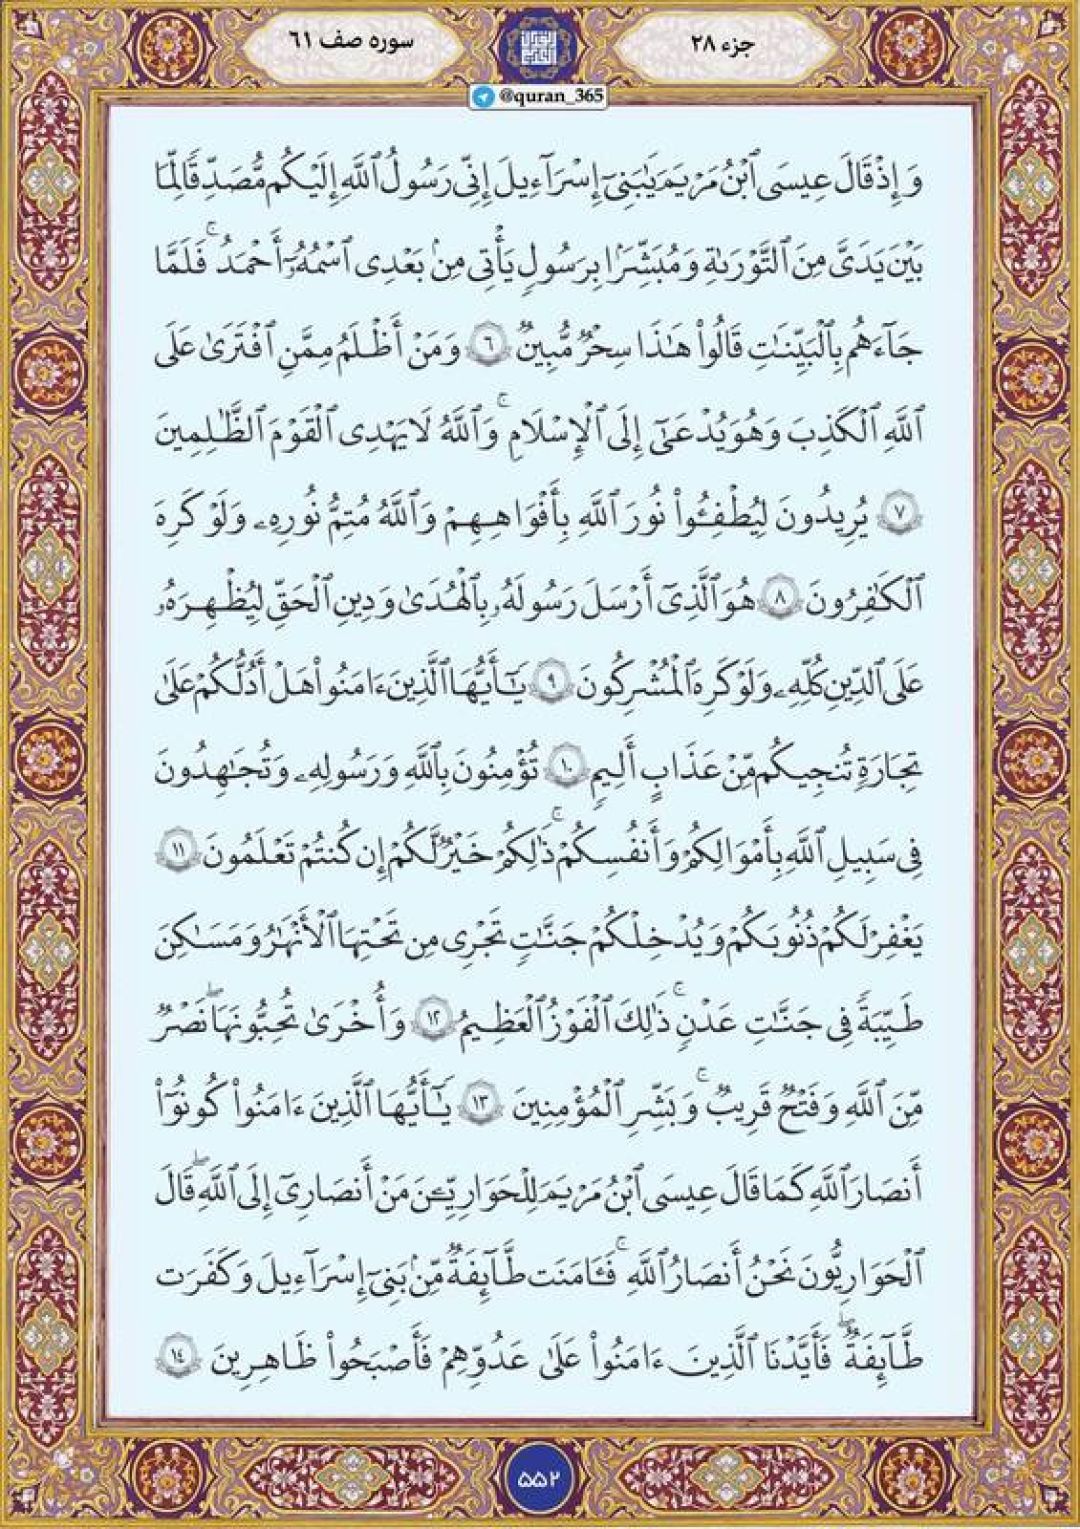 جزء ۲۸
سوره صف ۶۱
@quran_365
وَإِذْ قَالَ عِيسَى ٱبْنُ مَرْيَمَ يَٰبَنِىٓ إِسْرَآءِيلَ إِنِّى رَسُولُ ٱللَّهِ إِلَيْكُم مُّصَدِّقًا لِّمَا
بَيْنَ يَدَىَّ مِنَ ٱلتَّوْرَىٰةِ وَمُبَشِّرًۢا بِرَسُولٍ يَأْتِى مِنۢ بَعْدِى ٱسْمُهُۥٓ أَحْمَدُ ۚ فَلَمَّا
جَآءَهُم بِٱلْبَيِّنَٰتِ قَالُوا۟ هَٰذَا سِحْرٌ مُّبِينٌ ٦ وَمَنْ أَظْلَمُ مِمَّنِ ٱفْتَرَىٰ عَلَى
ٱللَّهِ ٱلْكَذِبَ وَهُوَ يُدْعَىٰٓ إِلَى ٱلْإِسْلَامِ ۚ وَٱللَّهُ لَا يَهْدِى ٱلْقَوْمَ ٱلظَّٰلِمِينَ
٧ يُرِيدُونَ لِيُطْفِـُٔوا۟ نُورَ ٱللَّهِ بِأَفْوَاهِهِمْ وَٱللَّهُ مُتِمُّ نُورِهِۦ وَلَوْ كَرِهَ
ٱلْكَٰفِرُونَ ٨ هُوَ ٱلَّذِىٓ أَرْسَلَ رَسُولَهُۥ بِٱلْهُدَىٰ وَدِينِ ٱلْحَقِّ لِيُظْهِرَهُۥ
عَلَى ٱلدِّينِ كُلِّهِۦ وَلَوْ كَرِهَ ٱلْمُشْرِكُونَ ٩ يَٰٓأَيُّهَا ٱلَّذِينَ ءَامَنُوا۟ هَلْ أَدُلُّكُمْ عَلَىٰ
تِجَٰرَةٍ تُنجِيكُم مِّنْ عَذَابٍ أَلِيمٍ ١٠ تُؤْمِنُونَ بِٱللَّهِ وَرَسُولِهِۦ وَتُجَٰهِدُونَ
فِى سَبِيلِ ٱللَّهِ بِأَمْوَٰلِكُمْ وَأَنفُسِكُمْ ۚ ذَٰلِكُمْ خَيْرٌ لَّكُمْ إِن كُنتُمْ تَعْلَمُونَ ١١
يَغْفِرْ لَكُمْ ذُنُوبَكُمْ وَيُدْخِلْكُمْ جَنَّٰتٍ تَجْرِى مِن تَحْتِهَا ٱلْأَنْهَٰرُ وَمَسَٰكِنَ
طَيِّبَةً فِى جَنَّٰتِ عَدْنٍ ۚ ذَٰلِكَ ٱلْفَوْزُ ٱلْعَظِيمُ ١٢ وَأُخْرَىٰ تُحِبُّونَهَا ۖ نَصْرٌ
مِّنَ ٱللَّهِ وَفَتْحٌ قَرِيبٌ ۚ وَبَشِّرِ ٱلْمُؤْمِنِينَ ١٣ يَٰٓأَيُّهَا ٱلَّذِينَ ءَامَنُوا۟ كُونُوٓا۟
أَنصَارَ ٱللَّهِ كَمَا قَالَ عِيسَى ٱبْنُ مَرْيَمَ لِلْحَوَارِيِّـۧنَ مَنْ أَنصَارِىٓ إِلَى ٱللَّهِ ۖ قَالَ
ٱلْحَوَارِيُّونَ نَحْنُ أَنصَارُ ٱللَّهِ ۚ فَـَٔامَنَت طَّآئِفَةٌ مِّنۢ بَنِىٓ إِسْرَآءِيلَ وَكَفَرَت
طَّآئِفَةٌ ۖ فَأَيَّدْنَا ٱلَّذِينَ ءَامَنُوا۟ عَلَىٰ عَدُوِّهِمْ فَأَصْبَحُوا۟ ظَٰهِرِينَ ١٤
۵۵۲